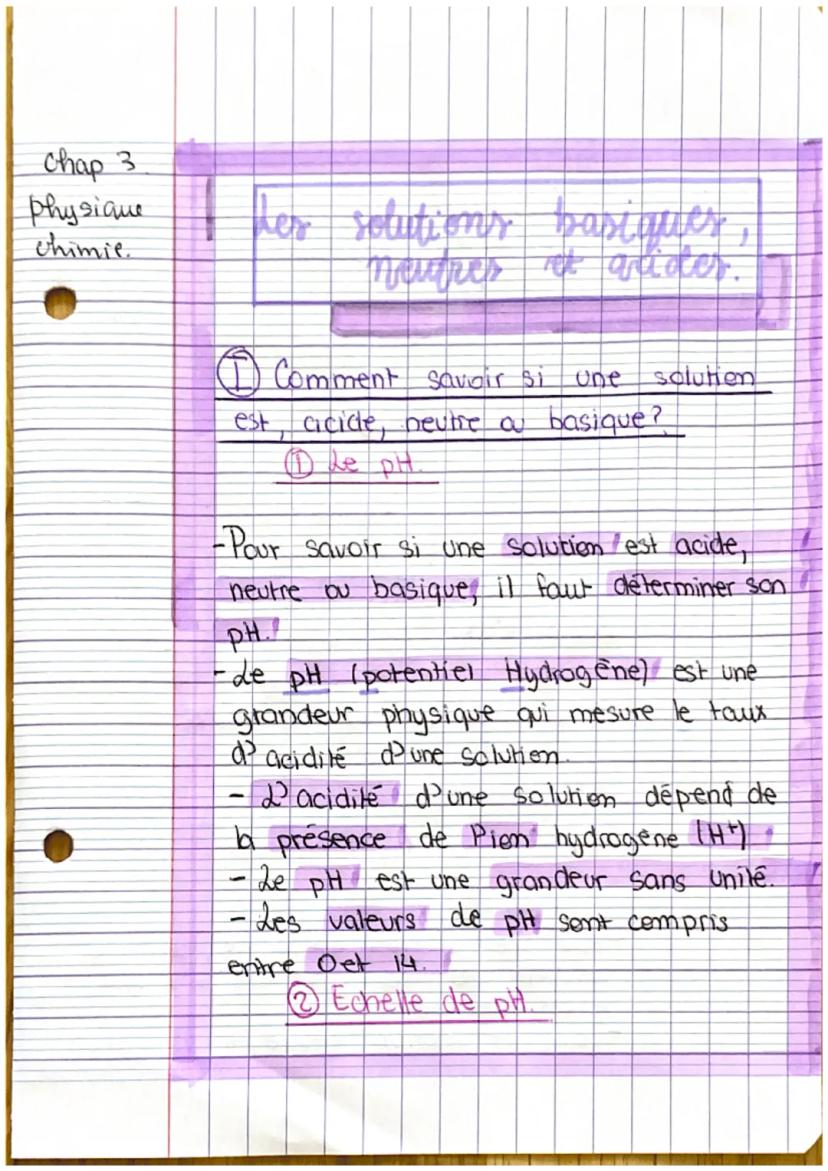 Chap 3
physique
chimie.
Les solutions basiques,
neutres et acides.
I Comment savoir si une solution
est, acide, neutre ou basique?
① Le pH.
-Pour savoir si une solution est acide,
neutre ou basique, il faut déterminer son
pH.
-Le pH (potentiel Hydrogène) est une
grandeur physique qui mesure le taux
d'acidité d'une solution.
- L'acidité d'une solution dépend de
la présence de l'ion hydrogène (H⁺)
- Le pH est une grandeur sans unité.
- Les valeurs de pH sont compris
entre 0 et 14.
② Echelle de pH.